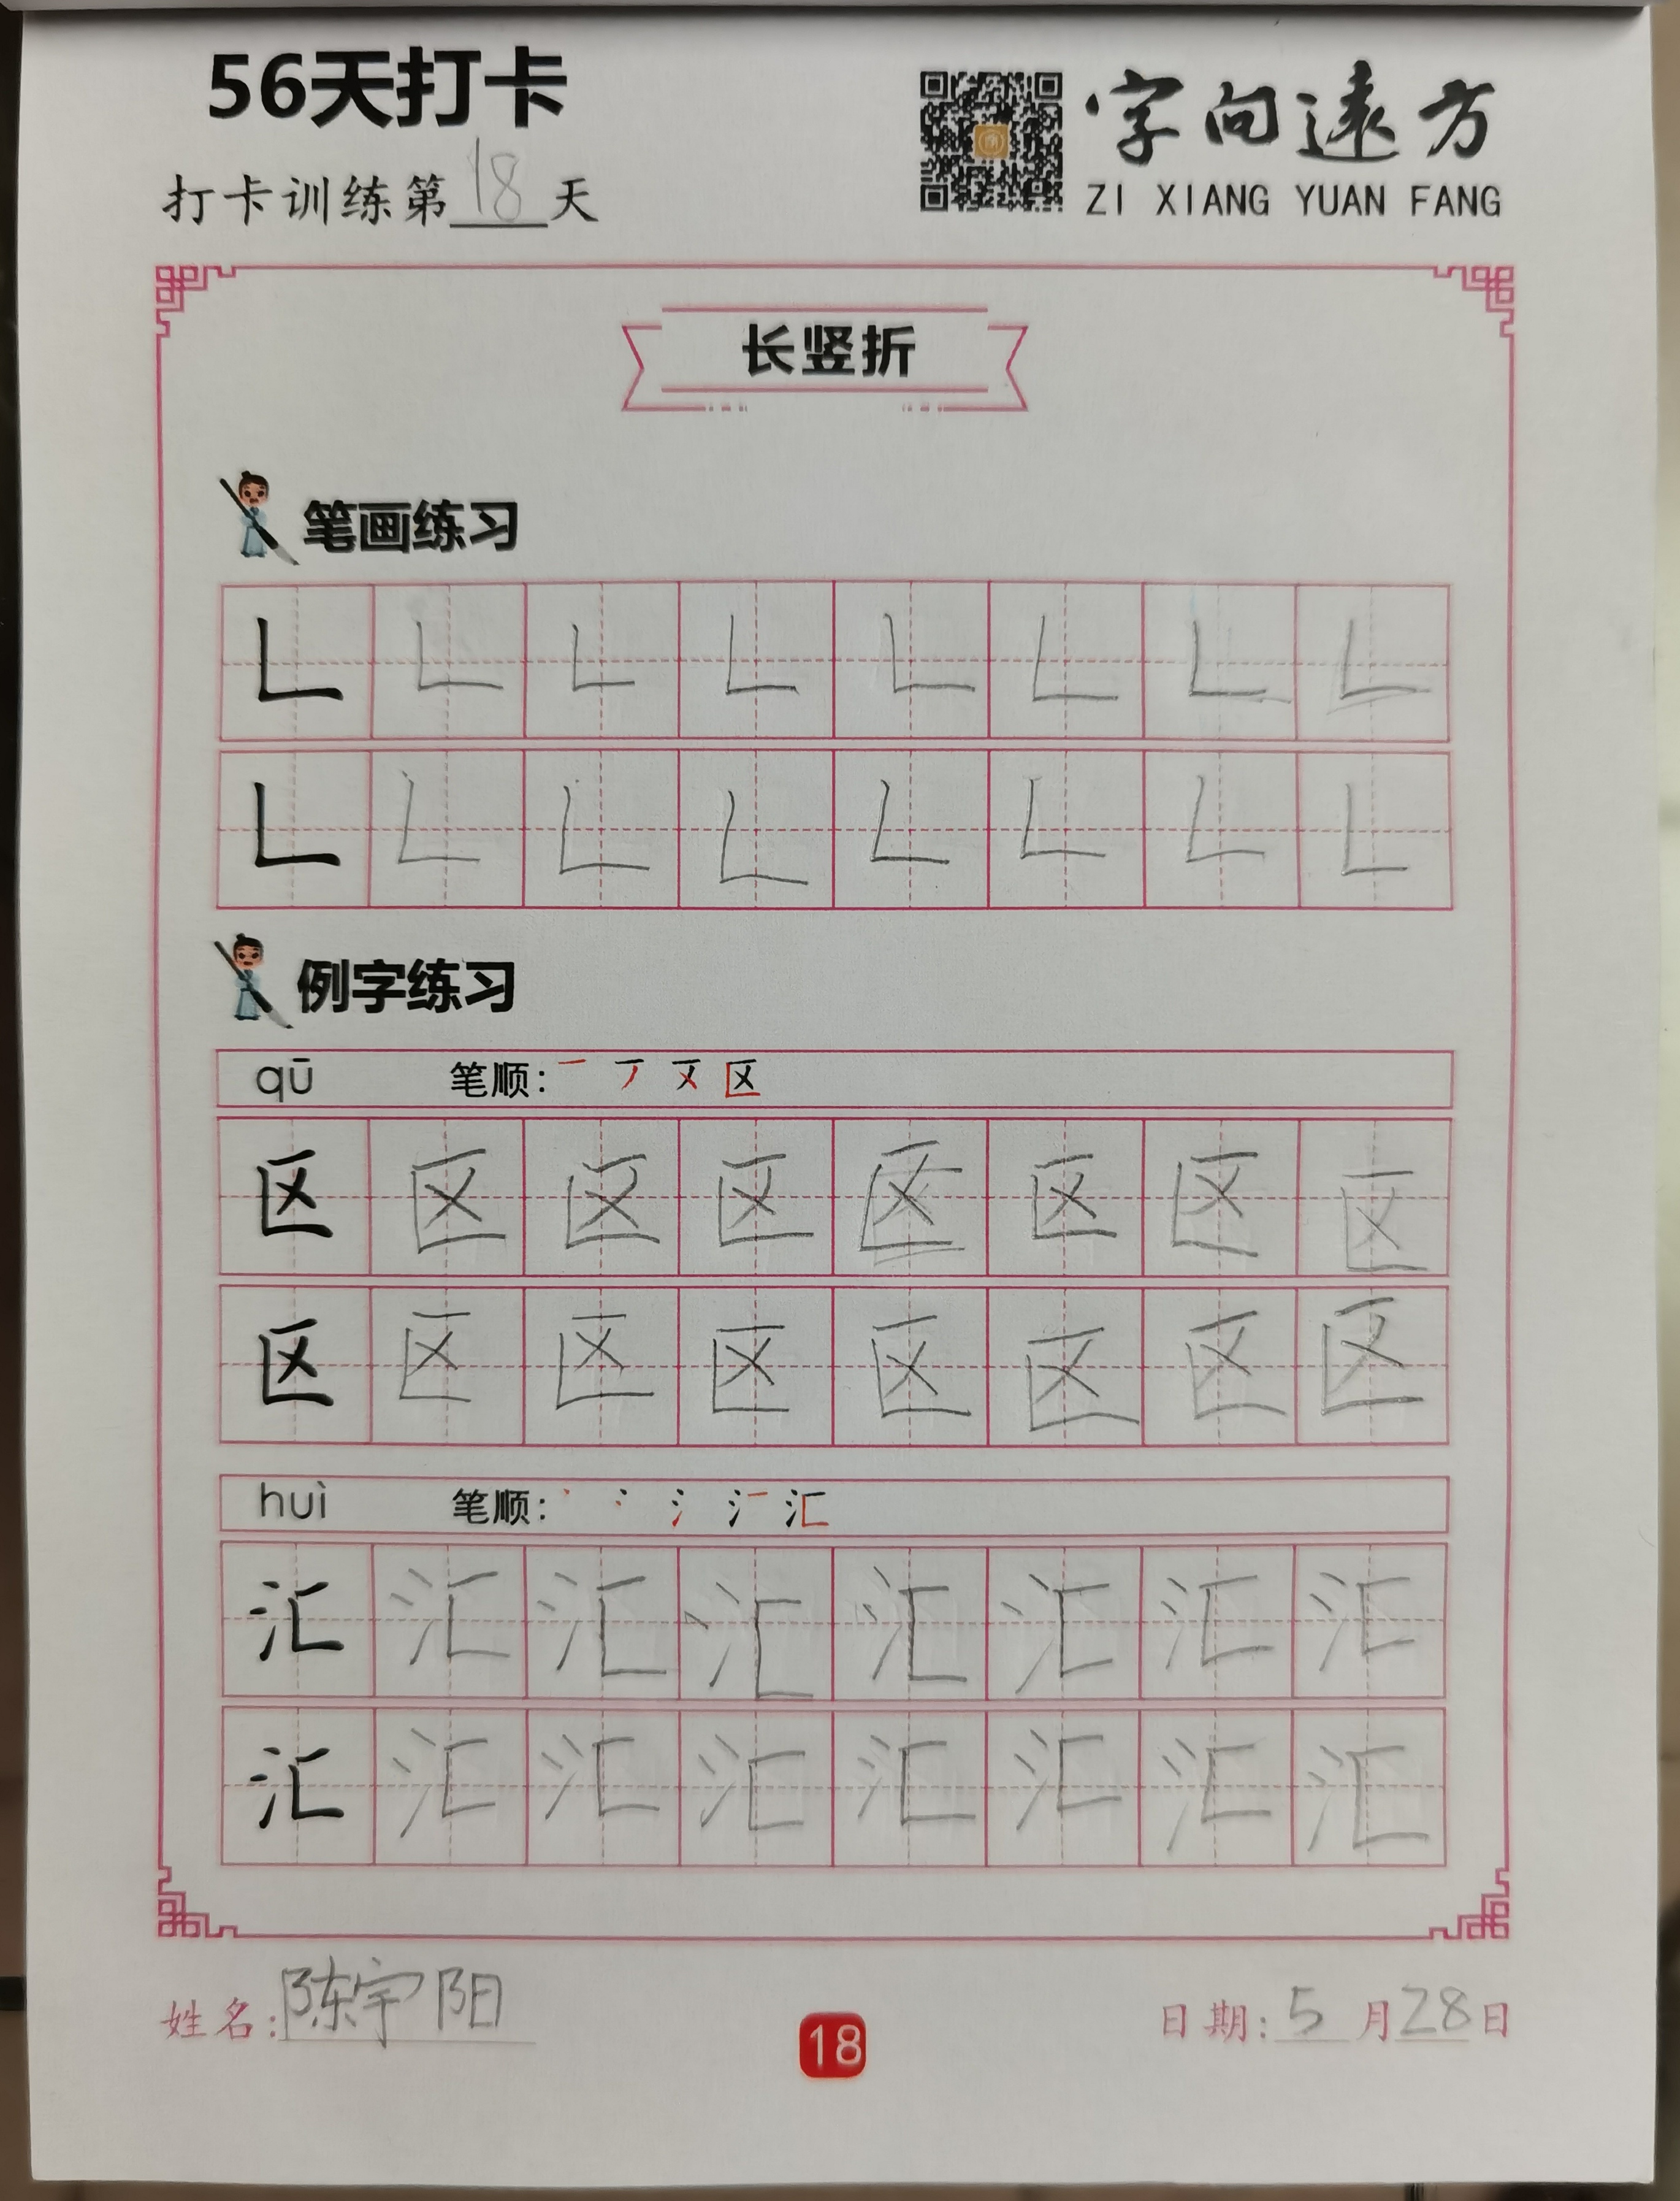 56天打卡
打卡训练第18天
字向遠方
ZI XIANG YUAN FANG
长竖折
笔画练习
𠃊 𠃊 𠃊 𠃊 𠃊 𠃊 𠃊 𠃊
𠃊 𠃊 𠃊 𠃊 𠃊 𠃊 𠃊 𠃊
例字练习
qū 笔顺: 区
区 区 区 区 区 区 区 区
区 区 区 区 区 区 区 区
huì 笔顺: 汇
汇 汇 汇 汇 汇 汇 汇 汇
汇 汇 汇 汇 汇 汇 汇 汇
姓名:陈宇阳
18
日期:5月28日